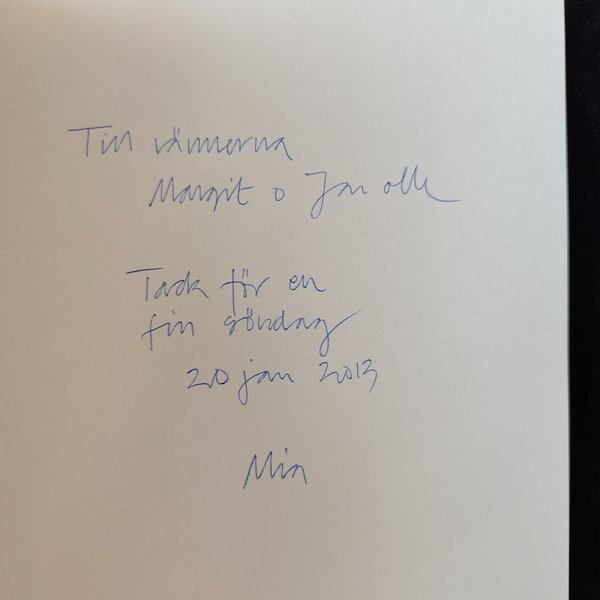 Till vännerna
Margit o Jan Olle
Tack för en
fin söndag
20 jan 2013
Mia